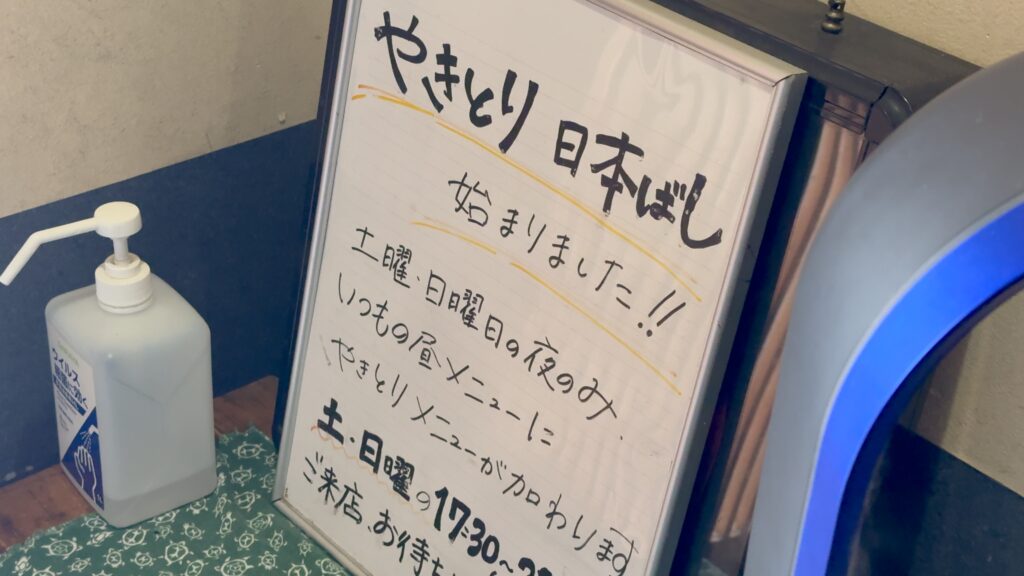 やきとり 日本ばし
始まりました!!
土曜・日曜日の夜のみ、
いつもの昼メニューに
やきとりメニューが加わります
土・日曜の17:30~2
ご来店、お待ち
ウイルス